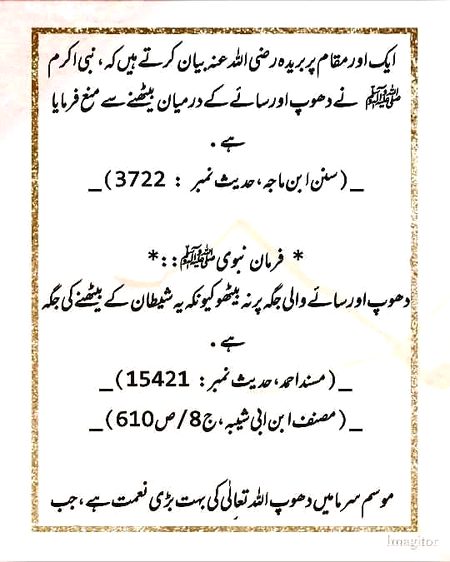 ایک اور مقام پر بریدہ رضی اللہ عنہ بیان کرتے ہیں کہ، نبی اکرم
ﷺ نے دھوپ اور سائے کے درمیان بیٹھنے سے منع فرمایا
ہے .
_(سنن ابن ماجہ، حدیث نمبر : 3722)_
* فرمان نبوی ﷺ : : *
دھوپ اور سائے والی جگہ پر نہ بیٹھو کیونکہ یہ شیطان کے بیٹھنے کی جگہ
ہے .
_(مسند احمد، حدیث نمبر : 15421)_
_(مصنف ابن ابی شیبہ، ج8/ص610)_
موسم سرما میں دھوپ اللہ تعالٰی کی بہت بڑی نعمت ہے، جب
Imagitor